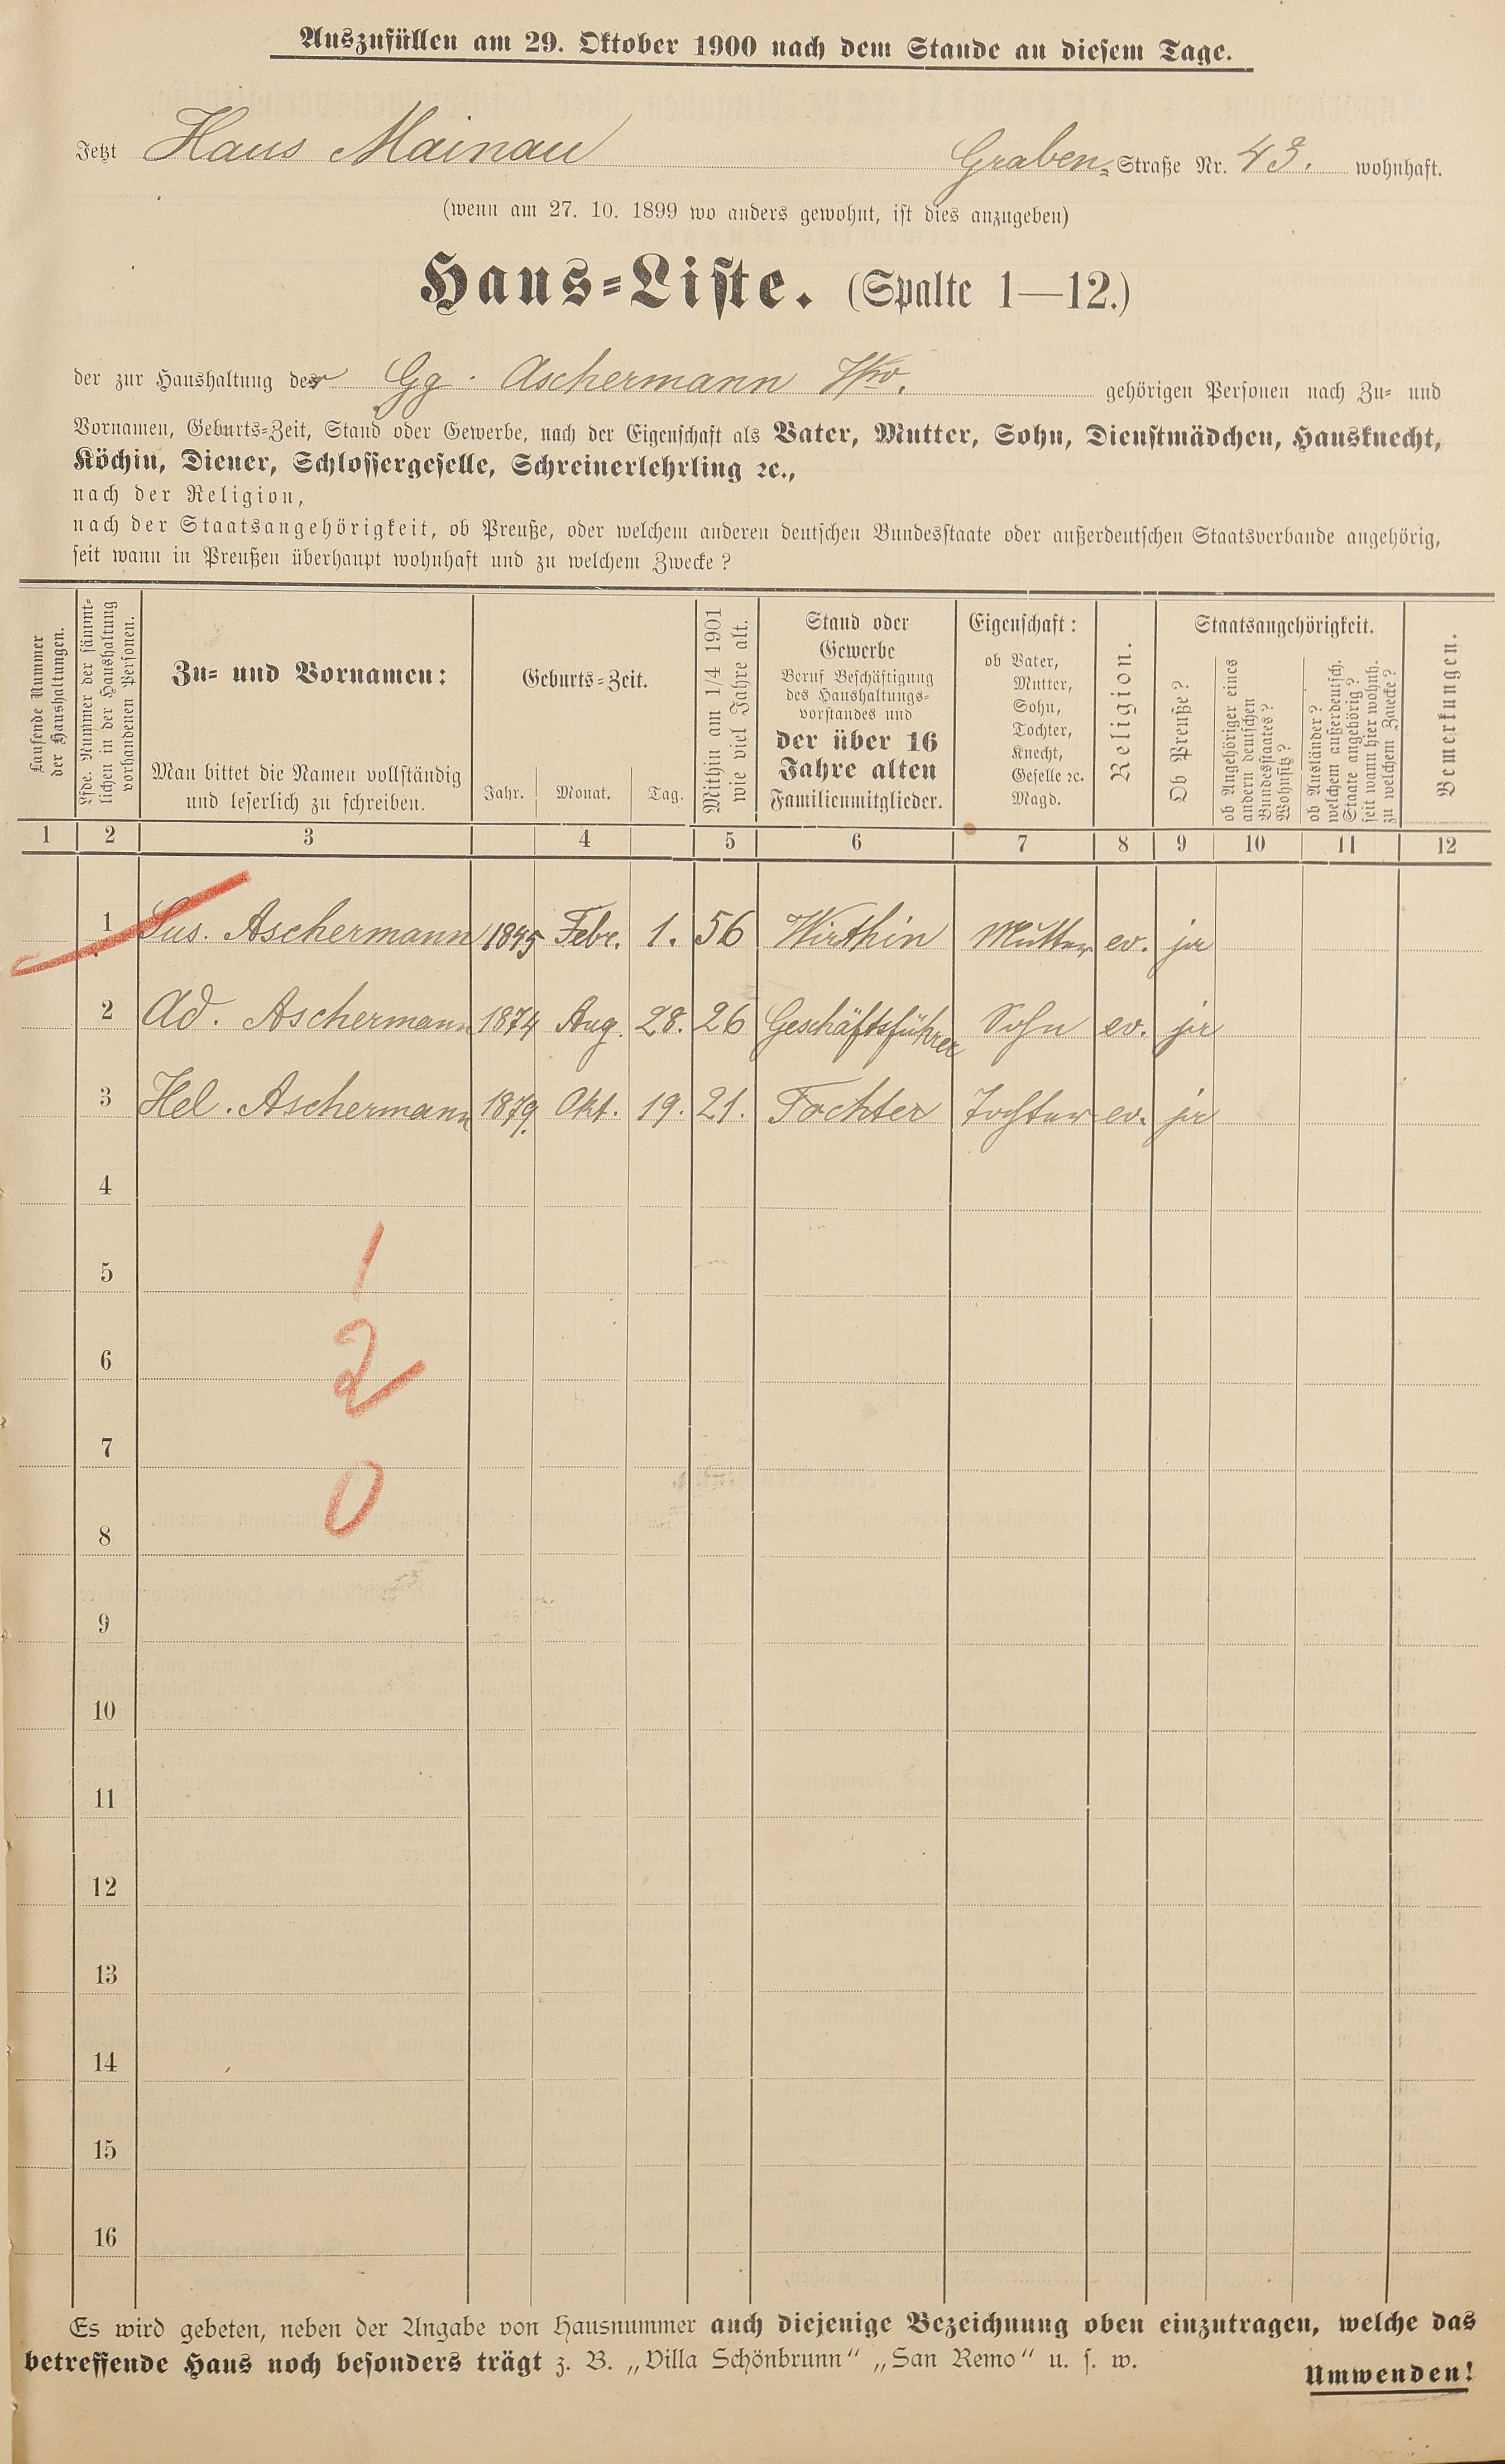 Auszufüllen am 29. Oktober 1900 nach dem Stande an diesem Tage.
Jetzt Haus Mainau Graben-Straße Nr. 43. wohnhaft.
(wenn am 27. 10. 1899 wo anders gewohnt, ist dies anzugeben)
Haus-Liste. (Spalte 1—12.)
der zur Haushaltung der Gg. Aschermann Wwe. gehörigen Personen nach Zu- und
Vornamen, Geburts-Zeit, Stand oder Gewerbe, nach der Eigenschaft als Vater, Mutter, Sohn, Dienstmädchen, Hausknecht,
Köchin, Diener, Schlossergeselle, Schreinerlehrling ꝛc.,
nach der Religion,
nach der Staatsangehörigkeit, ob Preuße, oder welchem anderen deutschen Bundesstaate oder außerdeutschen Staatsverbande angehörig,
seit wann in Preußen überhaupt wohnhaft und zu welchem Zwecke?
Laufende Nummer
der Haushaltungen.
Lfde. Nummer der sämmt-
lichen in der Haushaltung
vorhandenen Personen.
Zu- und Vornamen:
Man bittet die Namen vollständig
und leserlich zu schreiben.
Geburts-Zeit.
Jahr. Monat. Tag.
Mithin am 1/4 1901
wie viel Jahre alt.
Stand oder
Gewerbe
Beruf Beschäftigung
des Haushaltungs-
vorstandes und
der über 16
Jahre alten
Familienmitglieder.
Eigenschaft:
ob Vater,
Mutter,
Sohn,
Tochter,
Knecht,
Geselle ꝛc.
Magd.
Religion.
Staatsangehörigkeit.
Ob Preuße?
ob Angehöriger eines
andern deutschen
Bundesstaates?
Wohnsitz?
ob Ausländer?
welchem außerdeutsch.
Staate angehörig?
seit wann hier wohnh.
zu welchem Zwecke?
Bemerkungen.
1 2 3 4 5 6 7 8 9 10 11 12
1 Sus. Aschermann 1845 Febr. 1. 56 Wirthin Mutter ev. ja
2 Ad. Aschermann 1874 Aug. 28. 26 Geschäftsführer Sohn ev. ja
3 Hel. Aschermann 1879. Okt. 19. 21. Tochter Tochter ev. ja
4
1
5
2
6
7
0
8
9
10
11
12
13
14
15
16
Es wird gebeten, neben der Angabe von Hausnummer auch diejenige Bezeichnung oben einzutragen, welche das
betreffende Haus noch besonders trägt z. B. „Villa Schönbrunn“ „San Remo“ u. s. w.
Umwenden!